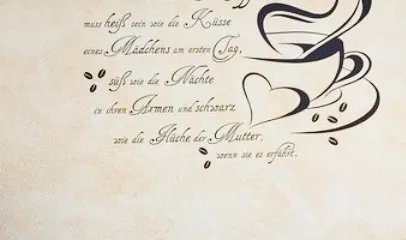 muss heiß sein wie die Küsse
eines Mädchens am ersten Tag,
süß wie die Nächte
in ihren Armen und schwarz
wie die Flüche der Mutter,
wenn sie es erfährt.